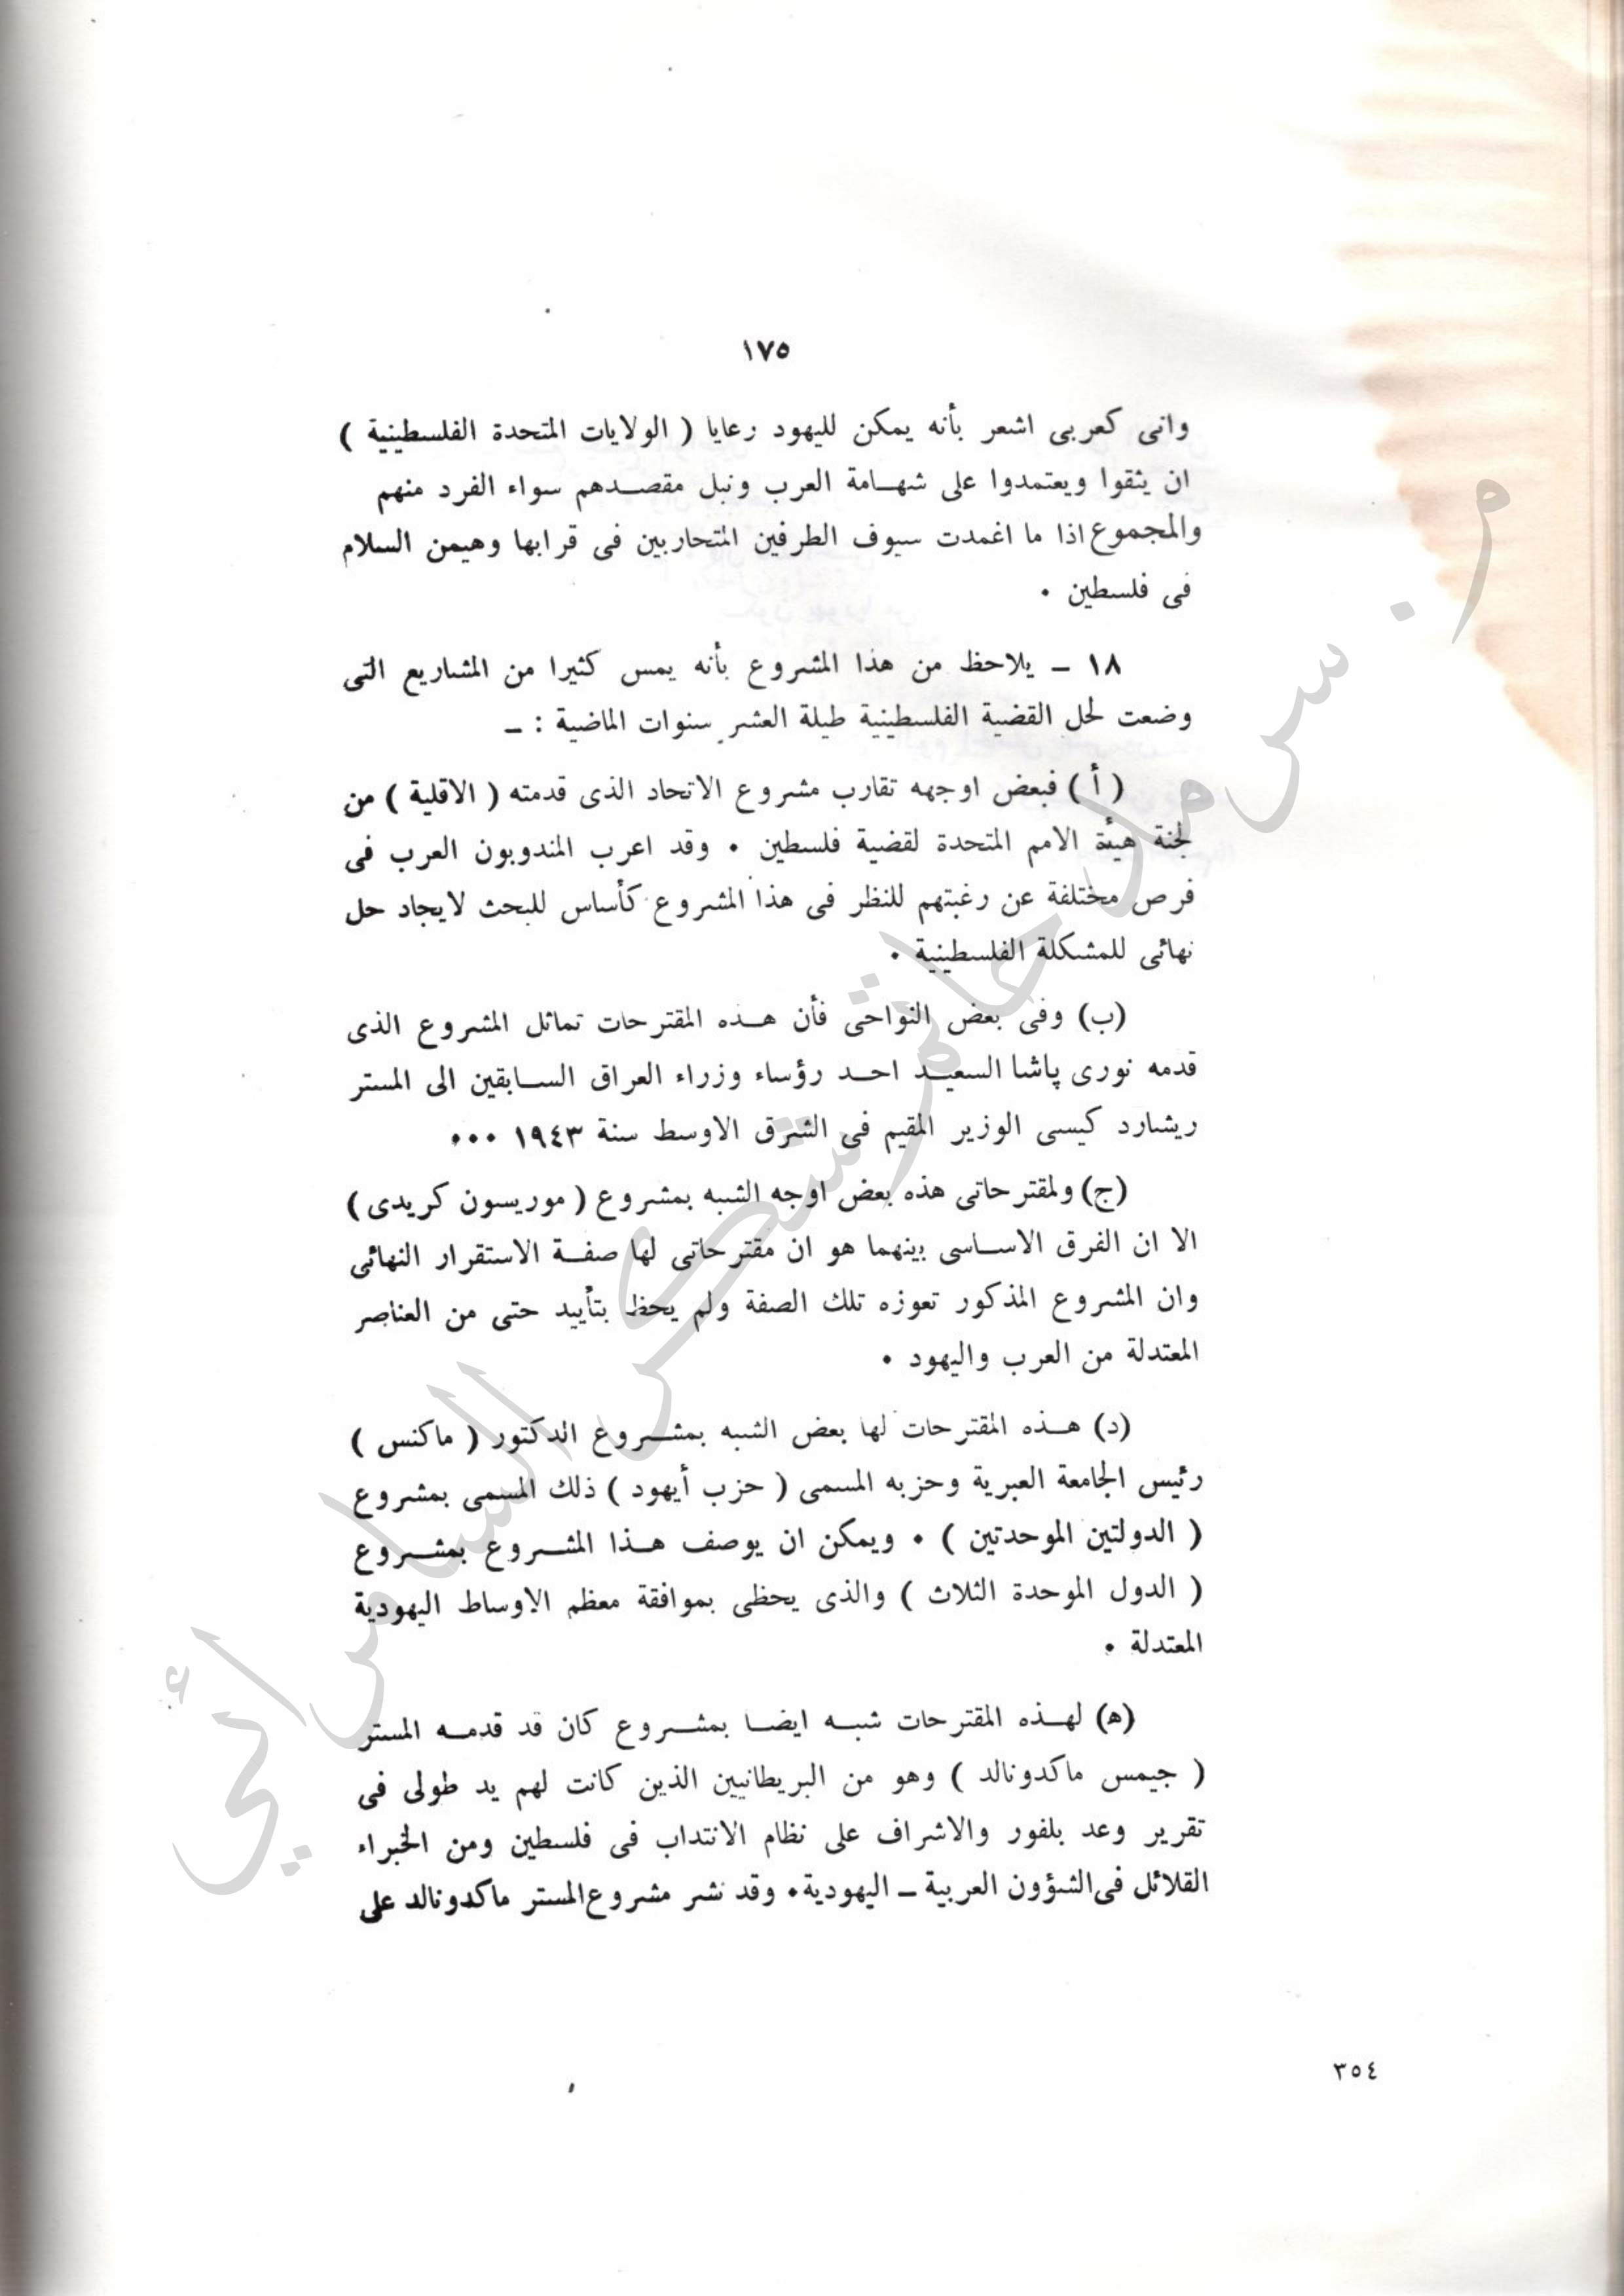 ١٧٥
وانى كعربى اشعر بأنه يمكن لليهود رعايا ( الولايات المتحدة الفلسطينية )
ان يثقوا ويعتمدوا على شهـامة العرب ونبل مقصـدهم سواء الفرد منهم
والمجموع اذا ما اغمدت سيوف الطرفين المتحاربين فى قرابها وهيمن السلام
فى فلسطين ٠
١٨ ـ يلاحظ من هذا المشروع بأنه يمس كثيرا من المشاريع التى
وضعت لحل القضية الفلسطينية طيلة العشر سنوات الماضية : ـ
( أ ) فبعض اوجهه تقارب مشروع الاتحاد الذى قدمته ( الاقلية ) من
لجنة هيئة الامم المتحدة لقضية فلسطين ٠ وقد اعرب المندوبون العرب فى
فرص مختلفة عن رغبتهم للنظر فى هذا المشروع كأساس للبحث لايجاد حل
نهائى للمشكلة الفلسطينية ٠
(ب) وفى بعض النواحى فأن هـذه المقترحات تماثل المشروع الذى
قدمه نورى پاشا السعيـد احـد رؤساء وزراء العراق السـابقين الى المستر
ريشارد كيسى الوزير المقيم فى الشرق الاوسط سنة ١٩٤٣ ٠٠٠
(ج) ولمقترحاتى هذه بعض اوجه الشبه بمشروع ( موريسون كريدى )
الا ان الفرق الاسـاسى بينهما هو ان مقترحاتى لها صفـة الاستقرار النهائى
وان المشروع المذكور تعوزه تلك الصفة ولم يحظ بتأييد حتى من العناصر
المعتدلة من العرب واليهود ٠
(د) هـذه المقترحات لها بعض الشبه بمشـروع الدكتور ( ماكنس )
رئيس الجامعة العبرية وحزبه المسمى ( حزب أيهود ) ذلك المسمى بمشروع
( الدولتين الموحدتين ) ٠ ويمكن ان يوصف هـذا المشـروع بمشـروع
( الدول الموحدة الثلاث ) والذى يحظى بموافقة معظم الاوساط اليهودية
المعتدلة ٠
(ه) لهـذه المقترحات شبـه ايضـا بمشـروع كان قد قدمـه المستر
( جيمس ماكدونالد ) وهو من البريطانيين الذين كانت لهم يد طولى فى
تقرير وعد بلفور والاشراف على نظام الانتداب فى فلسطين ومن الخبراء
القلائل فى الشؤون العربية ـ اليهودية٠ وقد نشر مشروع المستر ماكدونالد على
٣٥٤
م. سرمد حاتم شكر السامرائي